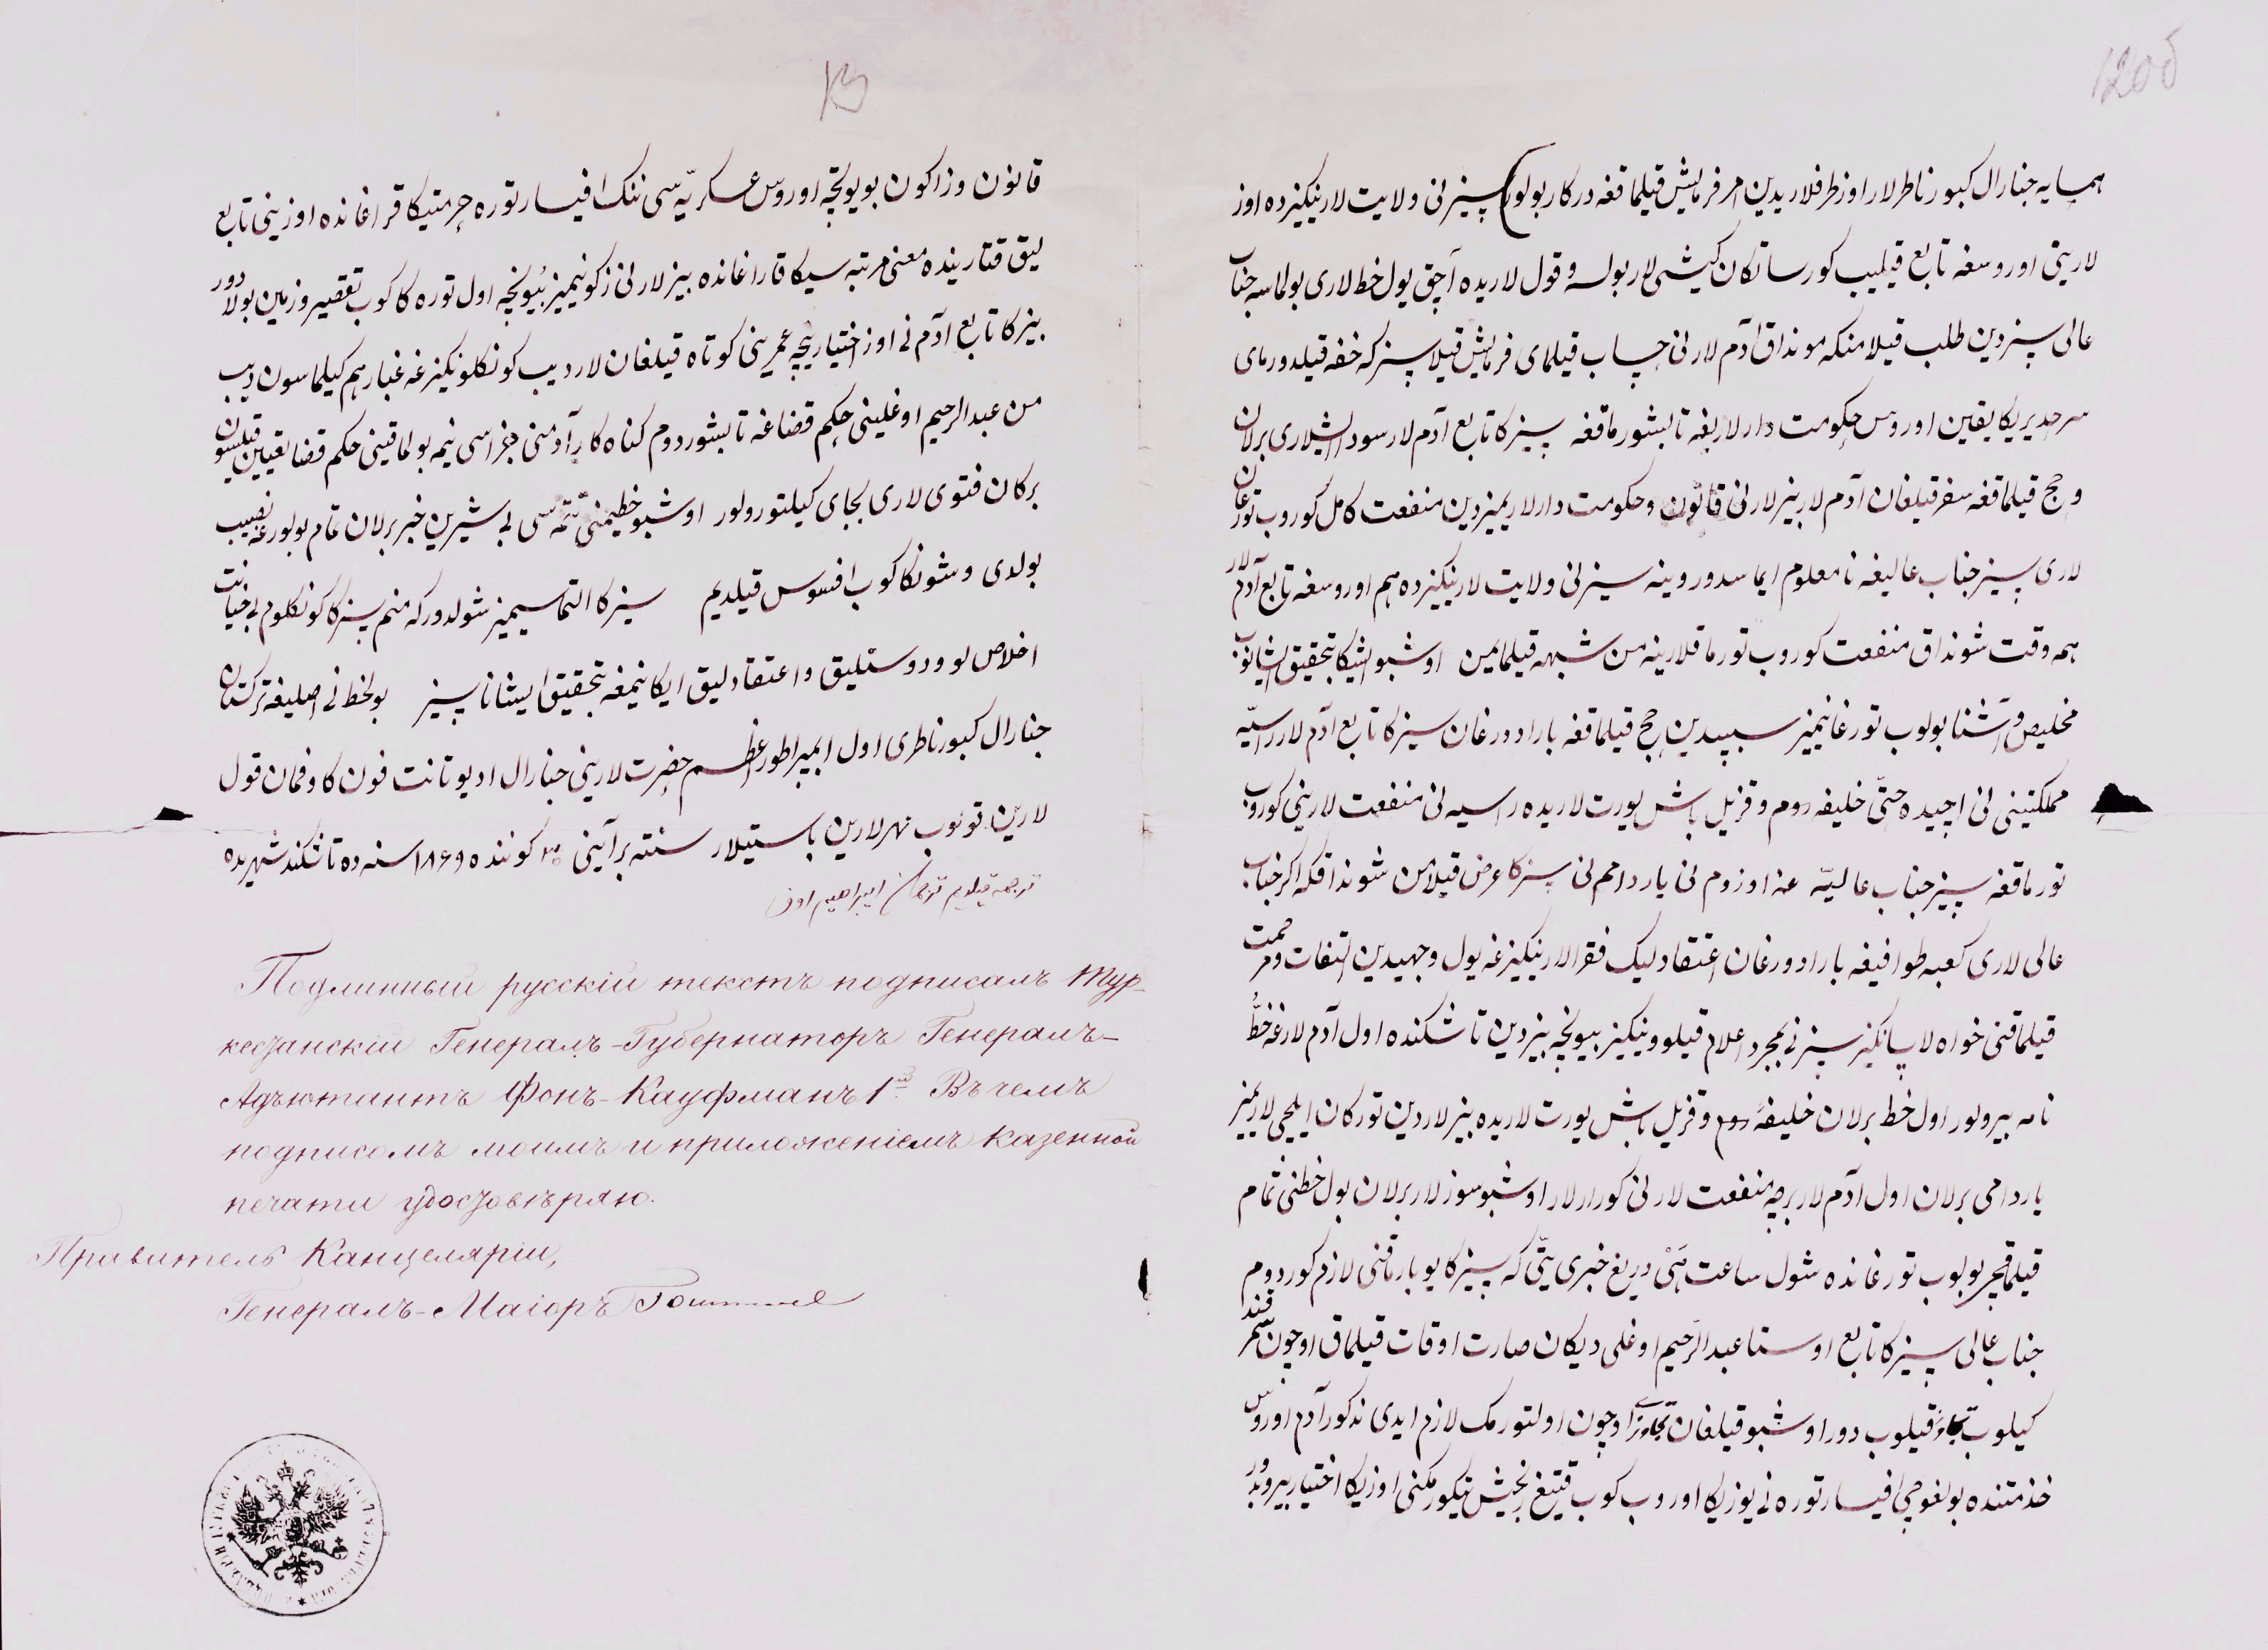 120б
همسایه جنارال کبورناطرلار اوز طرفلاریدین امر فرمایش قیلماقغه درکار بولور) سیزنی ولایت لارینکیزده اوز
لاریتی اوروسغه تابع قیلیب کورساتکان کیشی لار بولسه و قول لاریده آچق یول خط لاری بولماسه جناب
عالی سیزدین طلب قیلامنکه مونداق آدم لارنی حساب قیلمای فرمایش قیلاسیزکه خفه قیلدورمای
سرحدیریکا یقین اوروس حکومت دارلاریغه تابشورماقغه سیزکا تابع آدم لار سودا ایشلاری برلان
و حج قیلماقغه سفر قیلغان آدم لار بیزلارنی قانون و حکومت دارلاریمیزدین منفعت کامل کوروب تورغان
لاری سیز جناب عالیغه نامعلوم ایماسدور وینه سیزنی ولایت لارینکیزده هم اوروسغه تابع آدم لار
همه وقت شونداق منفعت کوروب تورماقلارینه من شبهه قیلمایمین اوشبو ایشکا تحقیق ایشانوب
مخلیص و آشنا بولوب تورغانیمیز سببیدین حج قیلماقغه بارادورغان سیزکا تابع آدم لار راسیّه
مملکتینی نی اچیده حتّی خلیفه روم و قزیل باش یورت لاریده راسیه نی منفعت لارینی کوروب
تورماقغه سیز جناب عالیّه غه اوزوم نی یاردامم نی سیزکا عرض قیلامن شونداقکه اکر جناب
عالی لاری کعبه طوافیغه بارادورغان اعتقادلیک فقرالارینکیزغه یول وجهیدین التفات و مرحمت
قیلماقنی خواه لاسانکیز سیزنی بمجرد اعلام قیلوونیکیز بیونچه بیزدین تاشکنده اول آدم لارغه خطّ
نامه بیرولور اول خط برلان خلیفهٔ روم و قزیل باش یورت لاریده بیزلاردین تورکان ایلچی لاریمیز
یاردامی برلان اول آدم لار برچه منفعت لارنی کورارلار اوشبو سوزلار برلان بول خطنی تمام
قیلماقچی بولوب تورغانده شول ساعت دریغ خبری یتّی که سیزکا یوبارماقنی لازم کوردوم
جناب عالی سیزکا تابع اوستا عبدالرّحیم اوغلی دیکان صارت اوقات قیلماق اوچون سمرقند
کیلوب قیلوب دور اوشبو قیلغان اوچون اولتورمک لازم ایدی مذکور آدم اوروس
خذمتنده بولغوچی افیسار توره نی یوزیکا اوروب کوب قتیغ رنجیش تیکورمکنی اوزیکا اختیار بیروبدور
13
قانون و زاکون بویونچه اوروس عسکریّه سی ننک افیسار توره حرمتیکا قراغانده اوزینی تابع
لیق قتاریندہ معنی مرتبه سیکا قاراغانده بیزلارنی زکونیمیز بیونچه اول توره کا کوب تقصیر وزمین بولادور
بیزکا تابع آدم نی اوز اختیاریچه عمرینی کوتاه قیلغان لار دیب کونکلونکیزغه غبار هم کیلماسون دیب
من عبدالرحیم اوغلینی حکم قضاغه تابشوردوم کناه کار آدمنی جزاسی نیمه بولماقینی حکم قضا تعیین قیلسون
برکان فتوی لاری بجای کیلتورولور اوشبو خطیمنی تتمّه سی بی شیرین خبر برلان تمام بولورغه نصیب
بولدی و شونکا کوب افسوس قیلدیم سیزکا التماسیمیز شولدورکه منم سیزکا کونکلوم بی خیانت
اخلاص لو و دوستلیق و اعتقادلیق ایکانیمغه تحقیق ایشاناسیز بولخط نی اصلیغه ترکستان
جنارال کبورناطری اول ایمپراطور اعظم حضرت لارینی جنارال ادیوتانت فون کاوفمان قول
لارین قویوب مهرلارین باستیلار سنتهبر آیینی ٣٠ کونندہ ١٨٦٩ سنه ده تاشکند شهریده
ترجمه قیلدیم ترجمان ابراهیم اوف
Подлинный русскій текстъ подписалъ Тур-
кестанскій Генералъ-Губернаторъ Генералъ-
Адъютантъ Фонъ-Кауфманъ 1й. Въ чемъ
подписомъ моимъ и приложеніемъ казенной
печати удостовѣряю.
Правитель Канцеляріи,
Генералъ-Маіоръ